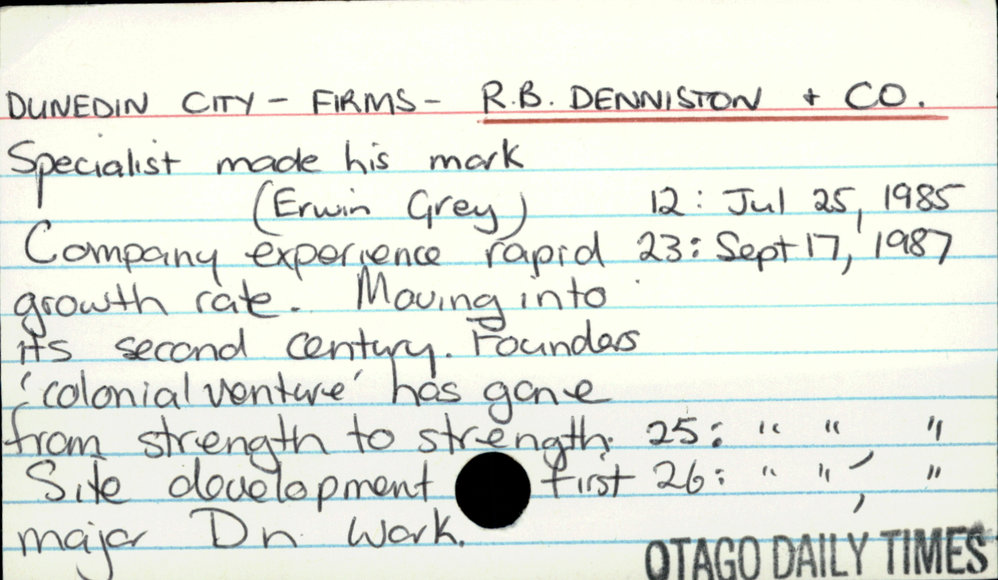 DUNEDIN CITY - FIRMS - R.B. DENNISTON + CO.
Specialist made his mark
(Erwin Grey) 12: Jul 25, 1985
Company experience rapid 23: Sept 17, 1987
growth rate. Moving into
its second century. Founders
'colonial venture' has gone
from strength to strength. 25: " " "
Site development first 26: " ", "
major Dn work.
OTAGO DAILY TIMES